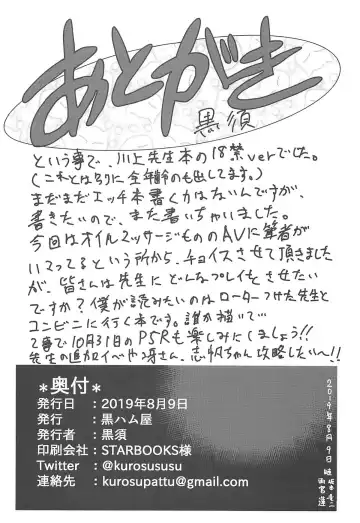 あとがき
黒須
という事で、川上先生本の18禁verでした。
(これとは別りに全年齢のも出してます。)
まだまだエッチ本書く力はないんですが、
書きたいので、また書いちゃいました。
今回はオイルマッサージもののAVに筆者が
ハマってるという所から、チョイスさせて頂きました
が、皆さんは先生にどんなプレイをさせたい
ですか？僕が読みたいのはローターつけた先生と
コンビニに行く本です。誰か描いて
て事で10月31日のP5Rも楽しみにしましょう!!
先生の追加イベや冴さん、志帆ちゃん攻略したいへ!!
*奥付*
発行日 ：2019年8月9日
発行 ：黒ハム屋
発行者 ：黒須
印刷会社：STARBOOKS様
Twitter ：@kurosususu
連絡先 ：kurosupattu@gmail.com
2019年8月9日